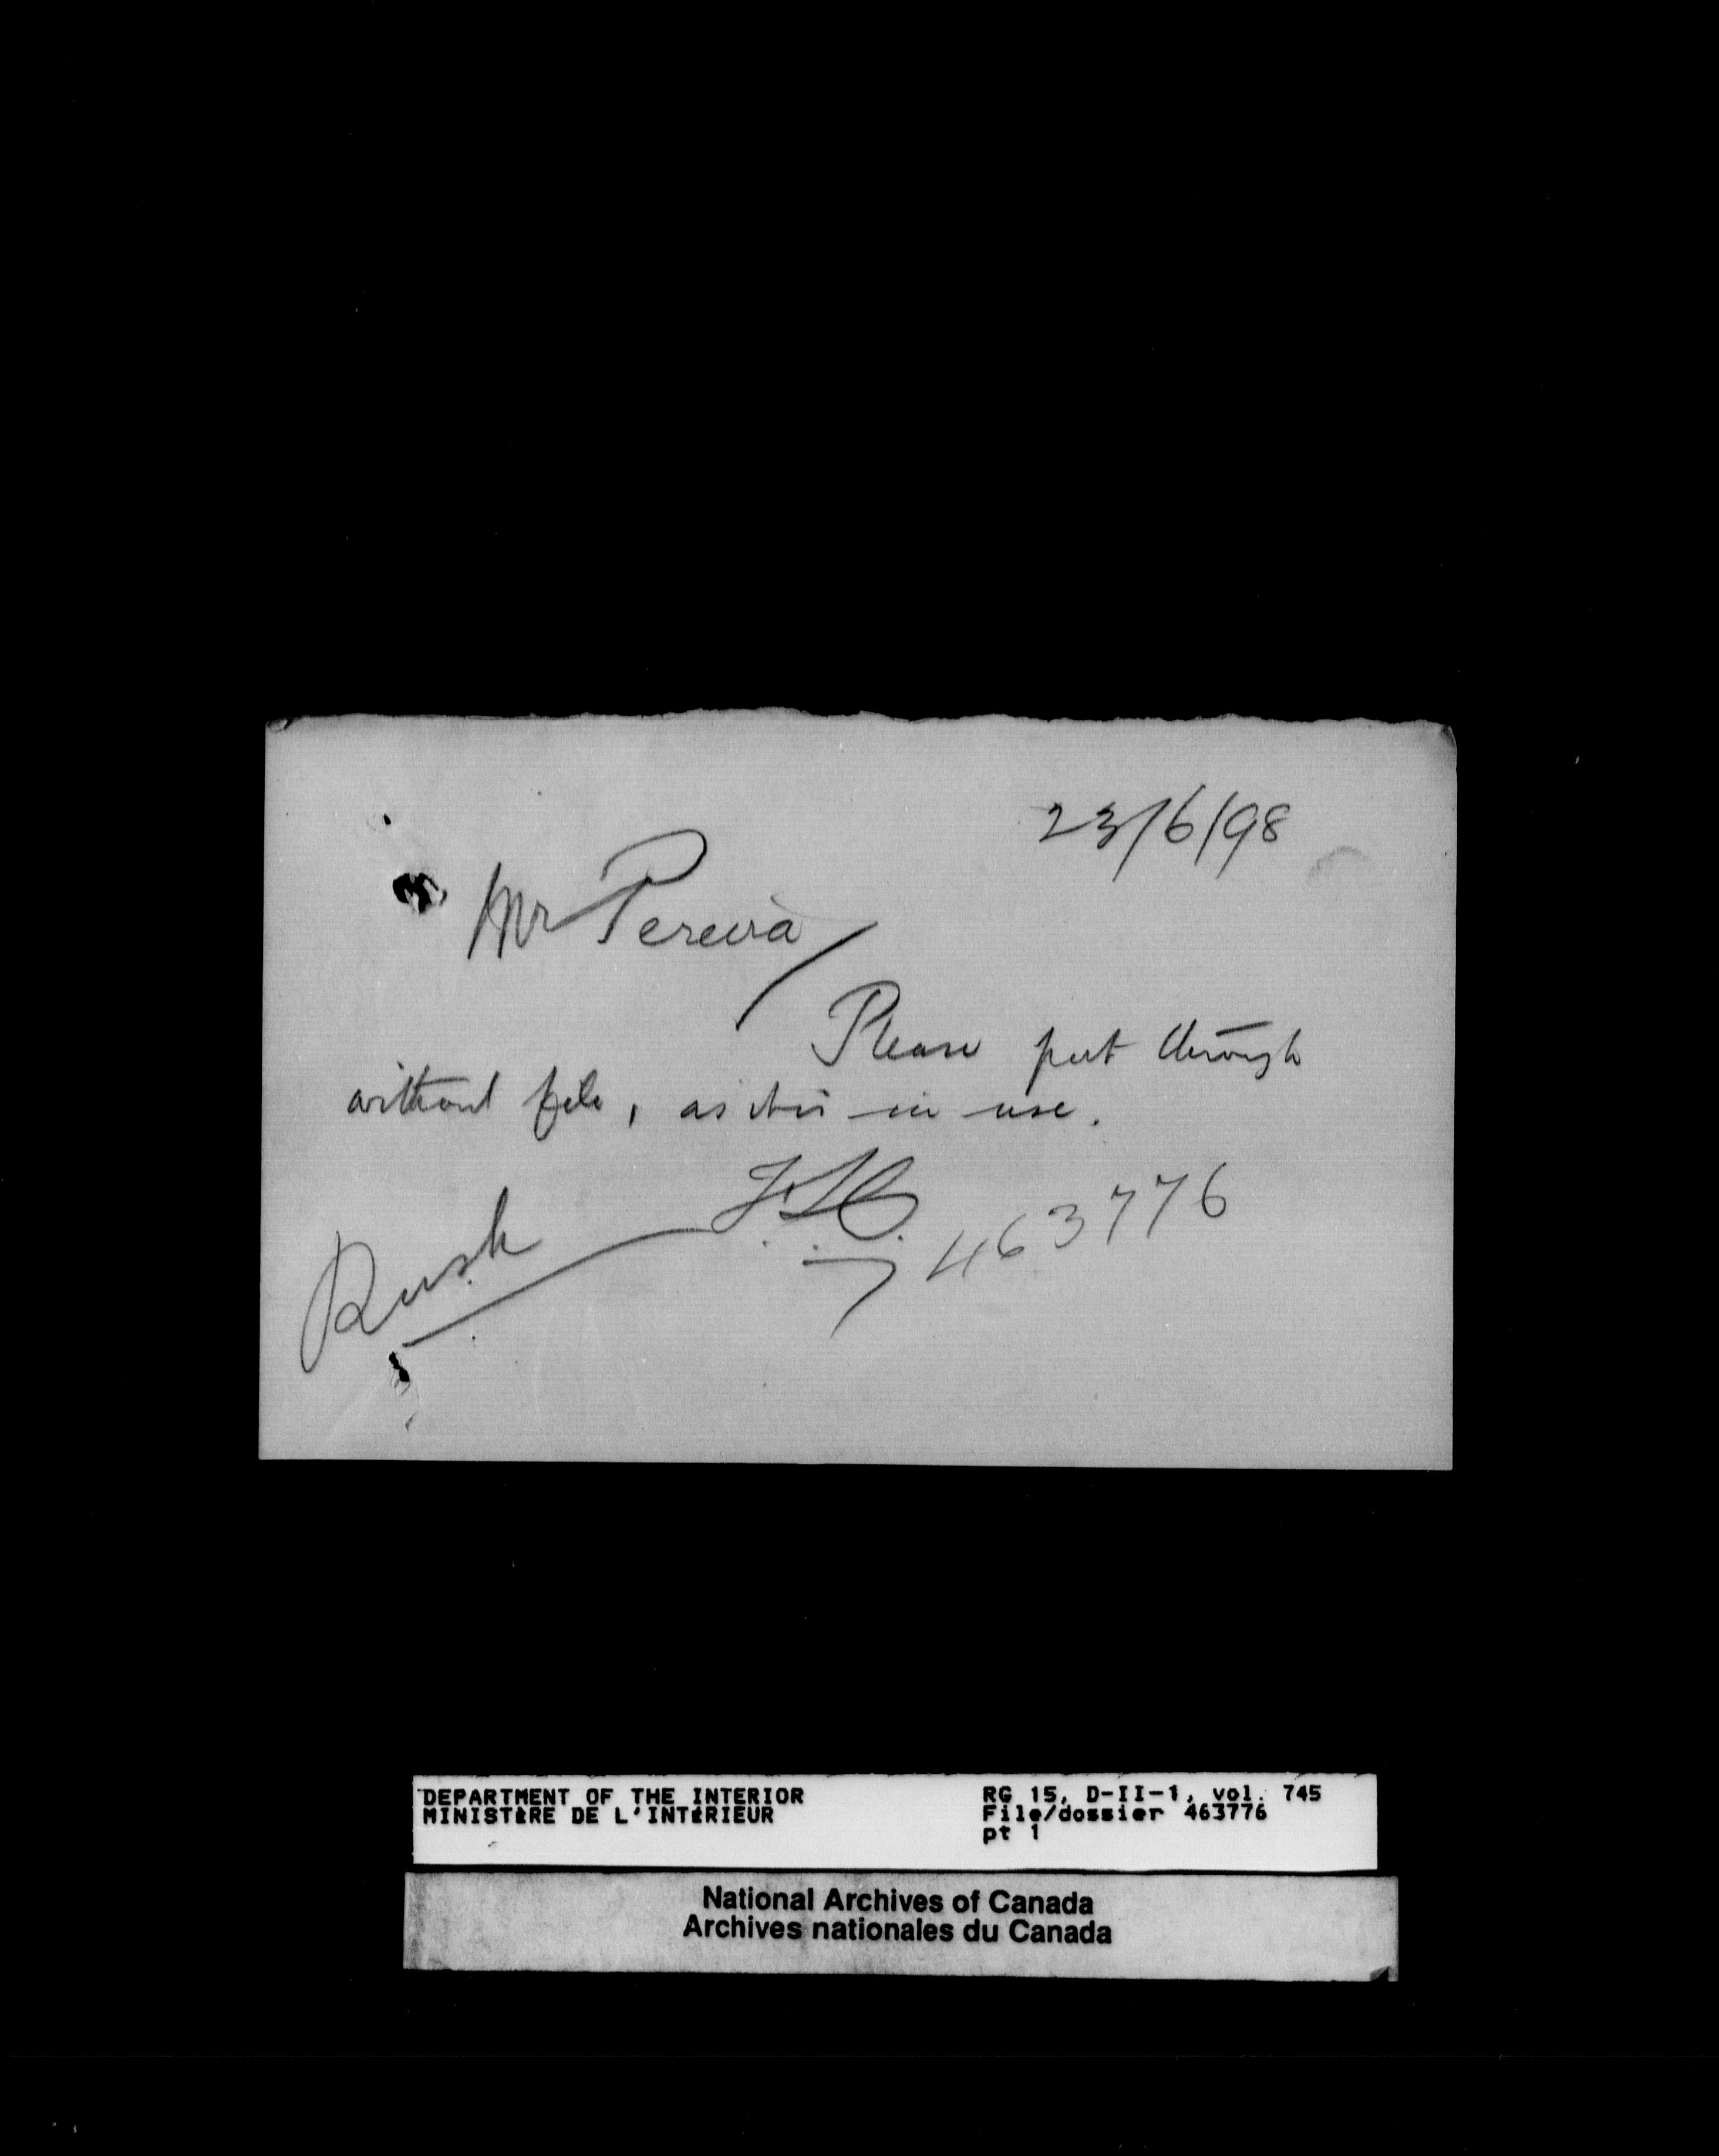 23/6/98
Mr Pereira
Please put through
without file, as it is in use.
Rush
463776
DEPARTMENT OF THE INTERIOR
MINISTÈRE DE L'INTÉRIEUR
RG 15, D-II-1, vol. 745
File/dossier 463776
pt 1
National Archives of Canada
Archives nationales du Canada